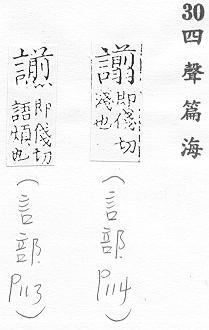 30四聲篇海
譾
即俴切
淺也
(言部P114)
即俴切
語煩也
(言部P113)